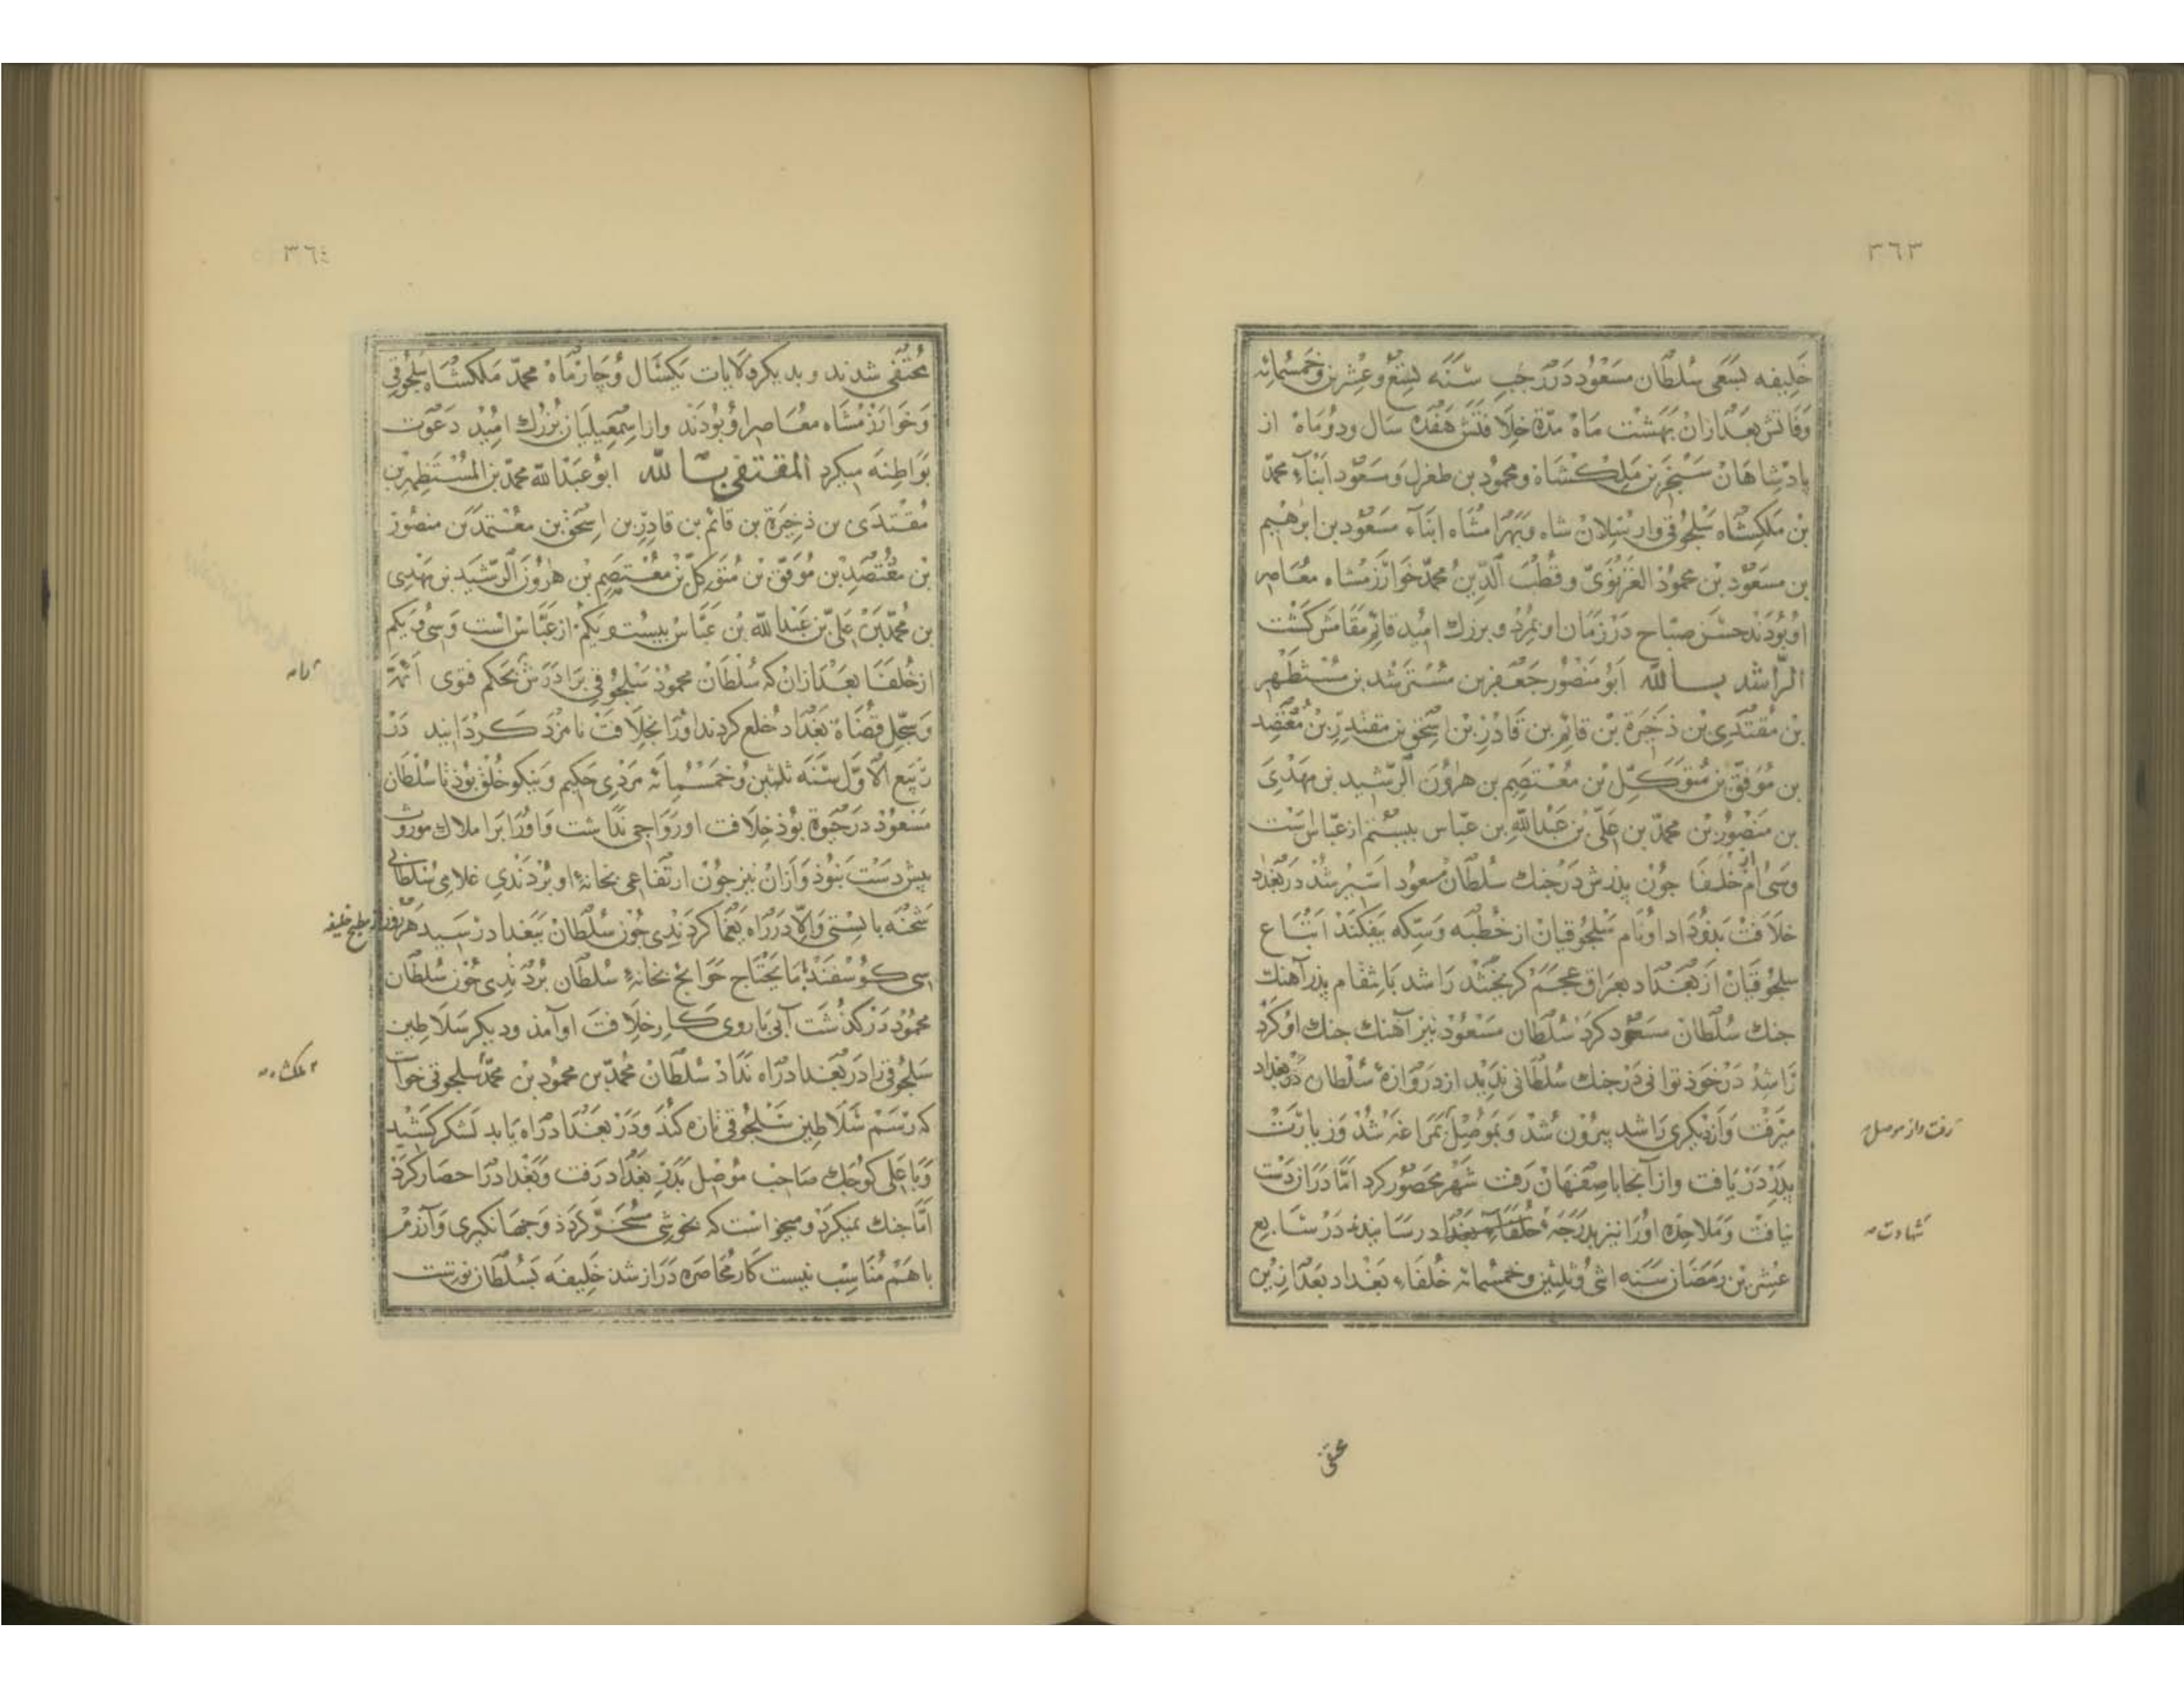 ٣٦٣
خلیفه بسعی سلطان مسعود در رجب سنه تسع وعشرین وخمسمائه
وفاتش بعد ازان بهشت ماه مدّة خلافتش هفده سال ودو ماه از
پادشاهان سنجر بن ملکشاه ومحمود بن طغرل ومسعود ابناء محمد
بن ملکشاه سلجوقی وارسلان شاه وبهرامشاه ابناء مسعود بن ابرهیم
بن مسعود بن محمود الغزنوی وقطب الدین محمد خوارزمشاه معاصر
او بودند حسن صباح در زمان او بمرد وبزرك امید قائم مقامش کشت
الراشد بالله ابو منصور جعفر بن مسترشد بن مستظهر
بن مقتدی بن ذخیرة بن قائم بن قادر بن اسحق بن مقتدر بن معتضد
بن موفق بن متوکل بن معتصم بن هرون الرشید بن مهدی
بن منصور بن محمد بن علی بن عبدالله بن عباس بیستم از عباس است
وسی ام از خلفا جون پدرش در جنك سلطان مسعود اسیر شد در بغداد
خلافت بدو داد او نام سلجوقیان از خطبه وسکه بیفکند اتباع
سلجوقیان از بغداد بعراق عجم کریختند راشد بانتقام پدر آهنك
جنك سلطان مسعود کرد سلطان مسعود نیز آهنك جنك او کرد
راشد در خود توانی در جنك سلطانی ندید از دروازۀ سلطان در بغداد
میرفت واز دیکری راشد بیرون شد وبموصل بمراغه شد وزیارت
رفت واز موصل
پدر دریافت واز آنجا باصفهان رفت شهر محصور کرد امّا دران دست
نیافت وملاحده اورا نیز بدرجۀ خلفاء بغداد رسانیدند در سابع
شهادت
عشرین رمضان سنه اثنی وثلثین وخمسمائه خلفاء بغداد بعد ازین
مختفی
٣٦٤
مختفی شدند وبدیکر ولایات یکسال وچار ماه محمد ملکشاه سلجوقی
وخوارزمشاه معاصر او بودند واز اسمعیلیان بزرك امید دعوت
بواطنه میکرد المقتفی بالله ابو عبدالله محمد بن المستظهر بن
مقتدی بن ذخیرة بن قائم بن قادر بن اسحق بن معتمد بن منصور
بن معتضد بن موفق بن متوکل بن معتصم بن هرون الرشید بن مهدی
بن محمد بن علی بن عبدالله بن عباس بیست ویکم از عباس است وسی ویکم
از خلفا بعد ازان که سلطان محمود سلجوقی برادرش بحکم فتوی ائمّه
وسجل قضاة بغداد خلع کردند اورا بخلافت نامزد کردانید در
ربیع الاول سنه ثلثین وخمسمائه مردی حکیم ونیکو خلق بود تا سلطان
مسعود در حیوة بود خلافت او رواجی نداشت واورا بر املاك موروث
پیش دست نبود وازان نیز جون ارتفاعی بخانۀ او بردندی غلامی سلطانی
شحنه بایستی والّا در راه یغما کردندی جون سلطان ببغداد رسید هر روز از مطبخ خلیفه
سی کوسفند بما یحتاج حوایج بخانۀ سلطان بردندی جون سلطان
محمود درکذشت آبی با روی کار خلافت او آمد ودیکر سلاطین
سلجوقی را در بغداد راه نداد سلطان محمد بن محمود بن محمد سلجوقی خواست
ملکشاه
که رسم سلاطین سلجوقی تازه کند ودر بغداد راه یابد لشکر کشید
وبا علی کوجك صاحب موصل بدر بغداد رفت وبغداد را حصار کرد
امّا جنك نمیکرد ومیخواست که بخوشی مسخر کردد وجهانکیری وآزرم
باهم مناسب نیست کار محاصره دراز شد خلیفه بسلطان نوشت